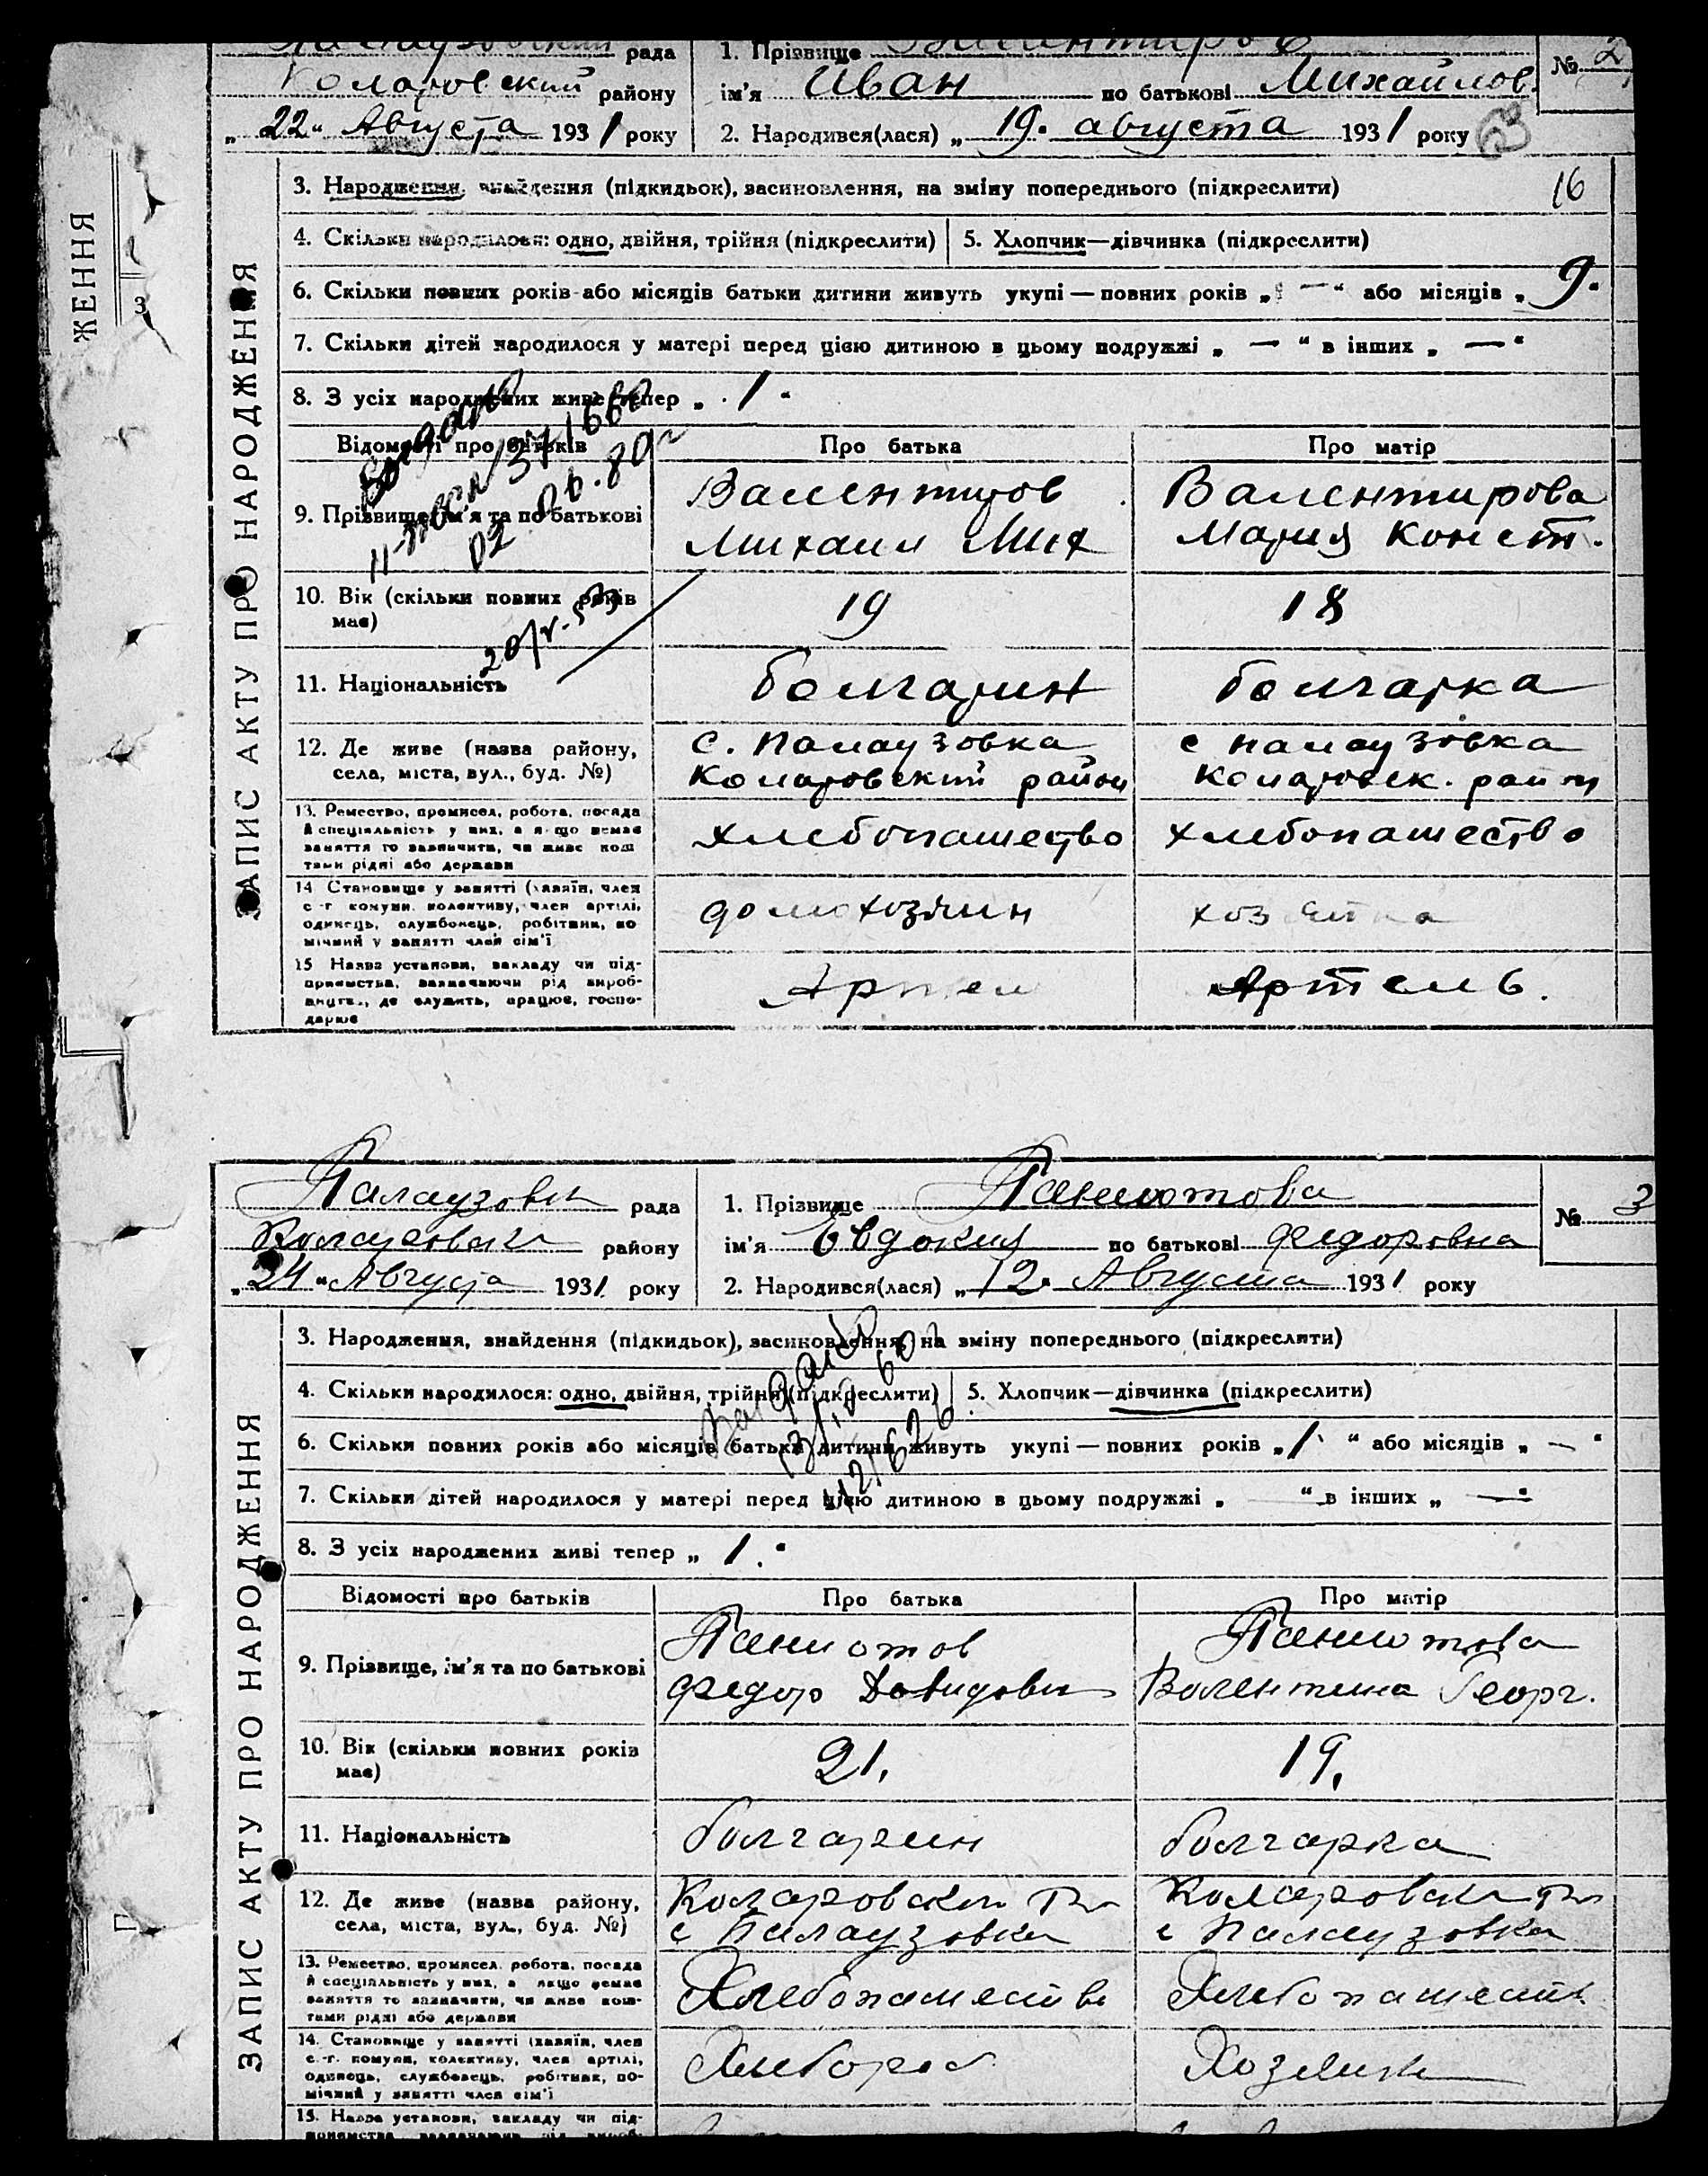 рада
районy
Коларовский
„ 22 “ Августа 1931 року
1. Прізвище Валентиров
ім'я Иван по батькові Михайлов.
2. Народився(лася) „ 19. августа 1931 року
№ 2
ЗАПИС АКТУ ПРО НАРОДЖЕННЯ
ЖЕННЯ
3
3. Народження, знайдення (підкидьок), засиновлення, на зміну попереднього (підкреслити)
16
4. Скільки народилося: одно, двійня, трійня (підкреслити)
5. Хлопчик—дівчинка (підкреслити)
6. Скільки повних років або місяців батьки дитини живуть укупі — повних років „ — “ або місяців „ 9.
7. Скільки дітей народилося у матері перед цією дитиною в цьому подружжі „ — “ в інших „ — “
8. З усіх народжених живі тепер „ 1 “
Відомості про батьків
Про батька
Про матір
9. Прізвище, ім'я та по батькові
Валентиров
Михаил Мих
Валентирова
Мария Конст.
10. Вік (скільки повних років має)
19
18
11. Національність
болгарин
болгарка
12. Де живе (назва району, села, міста, вул., буд. №)
с. Палаузовка
Коларовский район
с Палаузовка
Коларовск. район
13. Ремество, промисел, робота, посада й спеціяльність у них, а якщо немає заняття то зазначити, чи живе коштами рідні або держави
хлебопашество
хлебопашество
14 Становище у занятті (хазяїн, член с.-г. комуни, колективу, член артілі, одинець, службовець, робітник, помічний у занятті член сім'ї
домохозяин
хозяйка
15 Назва установи, закладу чи підприємства, зазначаючи рід виробництв., де служить, працює, господарює
Артел
Артель.
Палаузовск рада
Коларовски району
„ 24 “ Августа 1931. року
1. Прізвище Паниотова
ім'я Евдокия по батькові Федоровна
2. Народився(лася) „ 12 “ Августа 1931 року
№ 3
ЗАПИС АКТУ ПРО НАРОДЖЕННЯ
3. Народження, знайдення (підкидьок), засиновлення, на зміну попереднього (підкреслити)
4. Скільки народилося: одно, двійня, трійня (підкреслити)
5. Хлопчик—дівчинка (підкреслити)
6. Скільки повних років або місяців батьки дитини живуть укупі — повних років „ 1 “ або місяців „ — “
7. Скільки дітей народилося у матері перед цією дитиною в цьому подружжі „ “ в інших „ — “
8. З усіх народжених живі тепер „ 1. “
Відомості про батьків
Про батька
Про матір
9. Прізвище, ім'я та по батькові
Паниотов
Федор Давидович
Паниотова
Валентина Георг.
10. Вік (скільки повних років має)
21.
19.
11. Національність
болгарин
болгарка
12. Де живе (назва району, села, міста, вул., буд. №)
Коларовский
с Палаузовка
Коларовски
с Палаузовка
13. Ремество, промисел, робота, посада й спеціяльність у них, а якщо немає заняття то зазначити, чи живе коштами рідні або держави
Хлебопашество
Хлебопашеств
14. Становище у занятті (хазяїн, член с.-г. комуни, колективу, член артілі, одинець, службовець, робітник, помічний у занятті член сім'ї
Хлебороб
Хозяйка
15. Назва установи, закладу чи під-